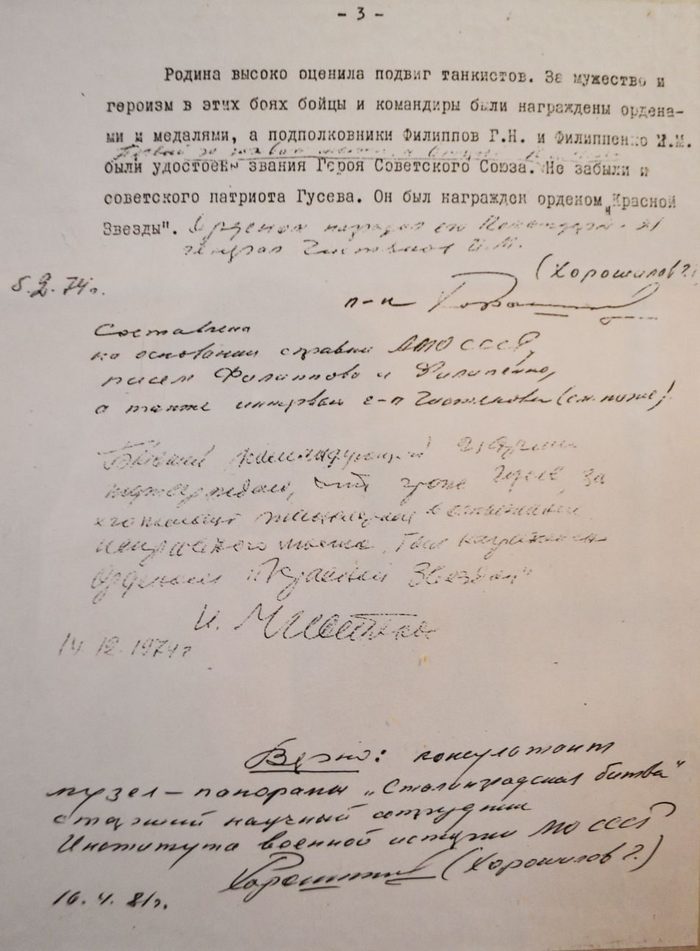 - 3 -
Родина высоко оценила подвиг танкистов. За мужество и
героизм в этих боях бойцы и командиры были награждены ордена-
ми и медалями, а подполковники Филиппов Г.Н. и Филиппенко М.М.
Первый за захват моста, а второй
были удостоены звания Героя Советского Союза. Не забыли и
советского патриота Гусева. Он был награжден орденом "Красной
Звезды". Орденом наградил его
генерал Чистяков И.М.
(Хорошилов Г.)
5.2.74г.
п-к
Составлена
на основании справки МО СССР,
писем Филиппова и Филипенко,
а также интервью г-п Чистякова (см. ниже)
Бывший командующий 21 армии
подтверждаю, что Гусев, за
моста, был награжден
орденом "Красной Звезды"
И. М Чистяков
14.12.1974г
Верно: консультант
музея-панорамы „Сталинградская битва"
старший научный сотрудник
Института военной истории МО СССР
(Хорошилов Г.)
16.4.81г.